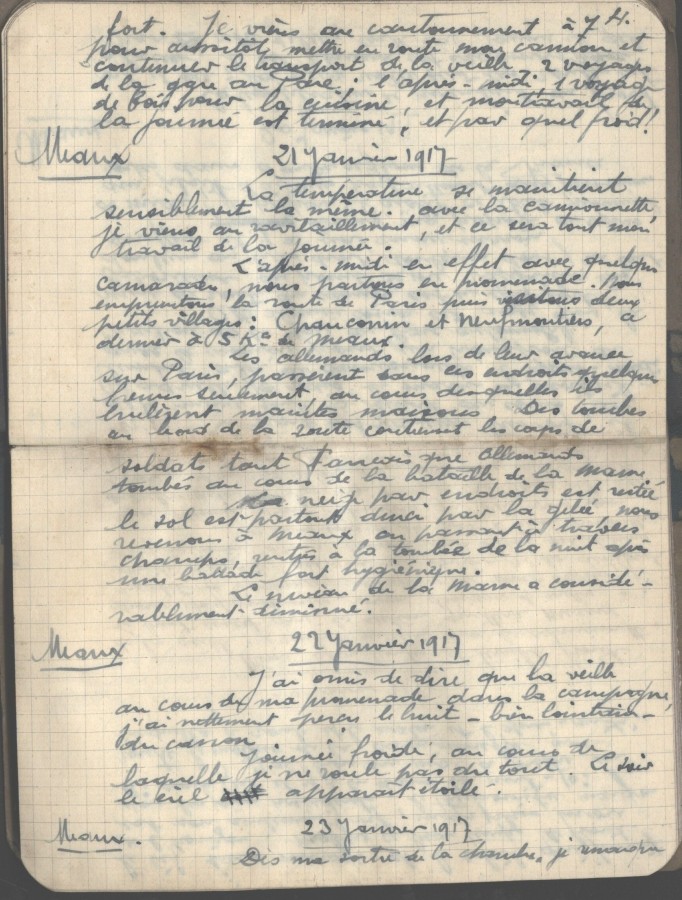 fort. Je viens au cantonnement à 7 H.
pour aussitôt mettre en route mon camion et
continuer le transport de la veille. 2 voyages
de la gare au Parc ; l'après-midi, 1 voyage
de bois pour la cuisine, et mon travail de
la journée est terminé, et par quel froid!
Meaux 21 Janvier 1917
La température se maintient
sensiblement la même. avec la camionnette,
je viens au ravitaillement, et ce sera tout mon
travail de la journée.
L'après-midi en effet avec quelques
camarades, nous partons en promenade. Nous
empruntons la route de Paris puis visitons deux
petits villages: Chauconin et Neufmoutiers, ce
dernier à 5 Km de Meaux.
Les allemands lors de leur avance
sur Paris, passèrent dans ces endroits quelques
heures seulement, au cours desquelles ils
brulèrent maintes maisons. Des tombes
au bord de la route contiennent les corps de
soldats tant Français que Allemands
tombés au cours de la bataille de la Marne.
La neige par endroits est restée
le sol est partout durci par la gelée, nous
revenons à Meaux en passant à travers
champs, rentrés à la tombée de la nuit après
une balade fort hygiénique.
Le niveau de la Marne a considé-
rablement diminué.
Meaux 22 Janvier 1917
J'ai omis de dire que la veille
au cours de ma promenade dans la campagne,
j'ai nettement perçu le bruit - bien lointain -
du canon.
Journée froide, au cours de
laquelle je ne roule pas du tout. Le soir
le ciel apparait étoilé.
Meaux. 23 Janvier 1917
Dès ma sortie de la chambre, je remarque